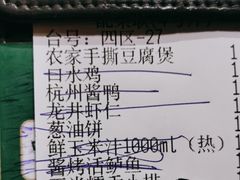 台号：四区-27
农家手撕豆腐煲 1
口水鸡 1
杭州酱鸭 1
龙井虾仁 1
葱油饼 1
鲜玉米汁1000ml（热） 1
酱烤活鲈鱼 1